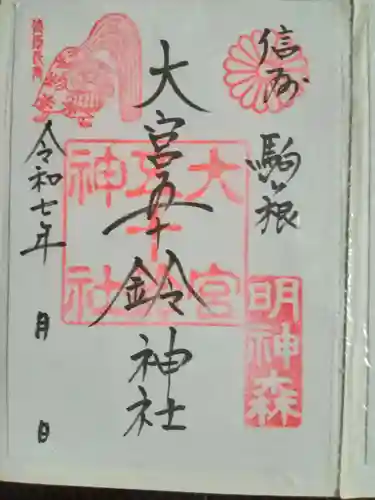 信州 駒ヶ根
明神森
大宮五十鈴神社
大宮
五十鈴
神社
令和七年 月 日